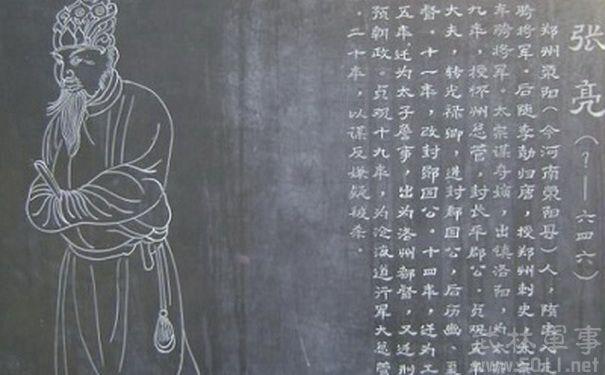 张亮(?——六四六)
郑州荥阳(今河南荥阳县)人,隋末
骑将军。后随李勣归唐,授郑州刺史,太宗
车骑将军。太宗谋夺嫡,出镇洛阳,为太
九年,授怀州总管,封长平郡公。贞观五年
大夫,转光禄卿,进封鄅国公,后历豳、夏
督。十一年,改封郧国公。十四年,迁为工
五年,迁为太子詹事,出为洛州都督,又迁刑
预朝政。贞观十九年,为沧海道行军大总管
。二十年,以谋反嫌疑被杀。
林軍事
www.5011.net